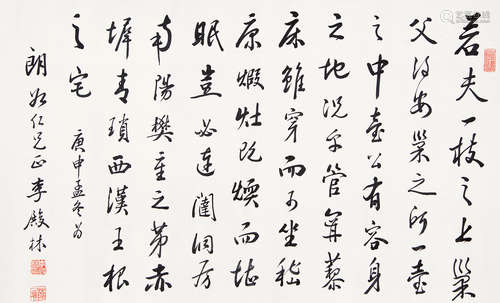 若夫一枝之上巢
父得安巢之所一壺
之中壺公有容身
之地況乎管寧藜
床雖穿而可坐嵇
康煅灶既煗而堪
眠豈必連闥洞房
南陽樊重之第赤
墀青瑣西漢王根
之宅
庚申孟冬為
朗如仁兄正 李殿林